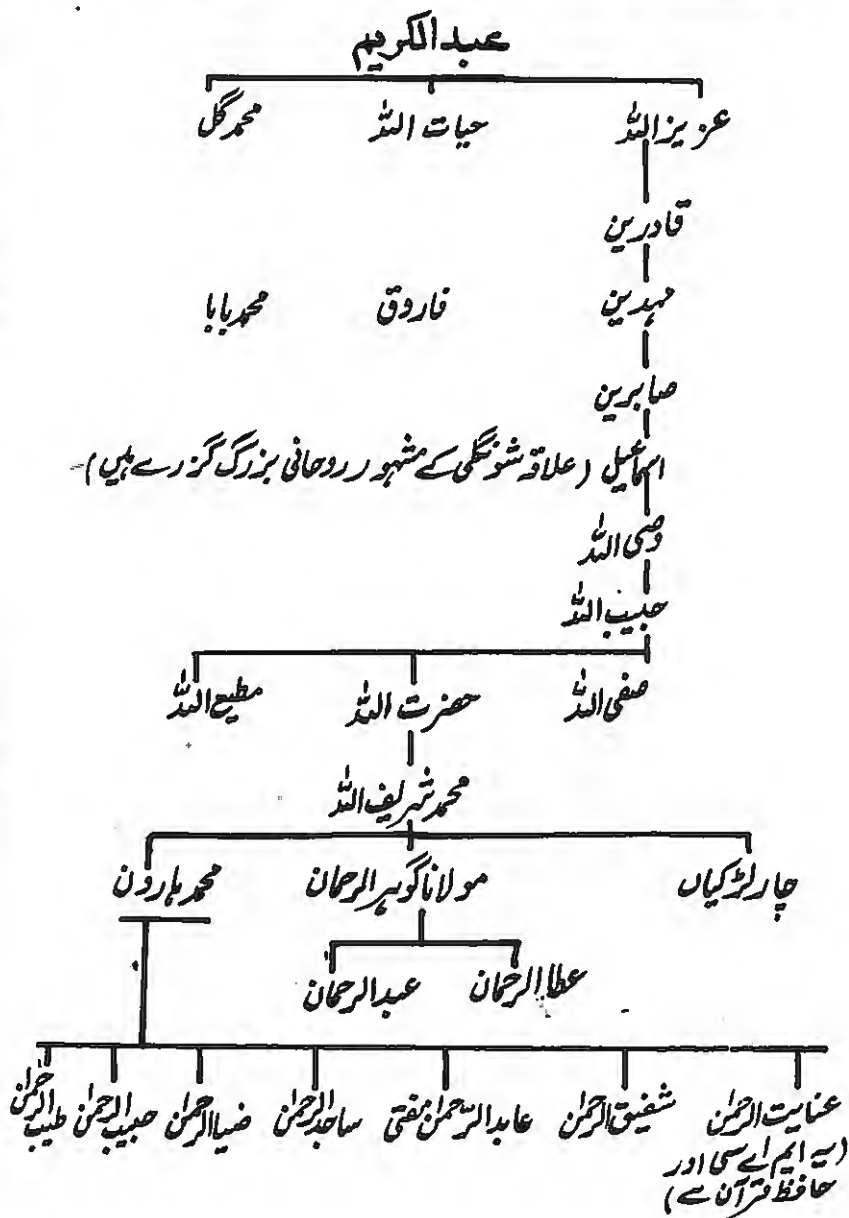 عبدالکریم
عزیزاللہ حیات اللہ محمدگل
قادرین
مہدین فاروق محمدبابا
صابرین
اسماعیل (علاقہ شونگلی کے مشہور روحانی بزرگ گزرے ہیں)۔
وصی اللہ
حبیب اللہ
صفی اللہ حضرت اللہ مطیع اللہ
محمدشریف اللہ
چارلڑکیاں مولاناگوہرالرحمان محمدہارون
عطاالرحمان عبدالرحمان
عنایت الرحمٰن شفیق الرحمٰن عابدالرّحمٰن مفتی ساجدالرحمٰن ضیاالرحمٰن حبیب الرحمٰن طیب الرحمٰن
(یہ ایم اے سی اور
حافظ قرآن ہے)